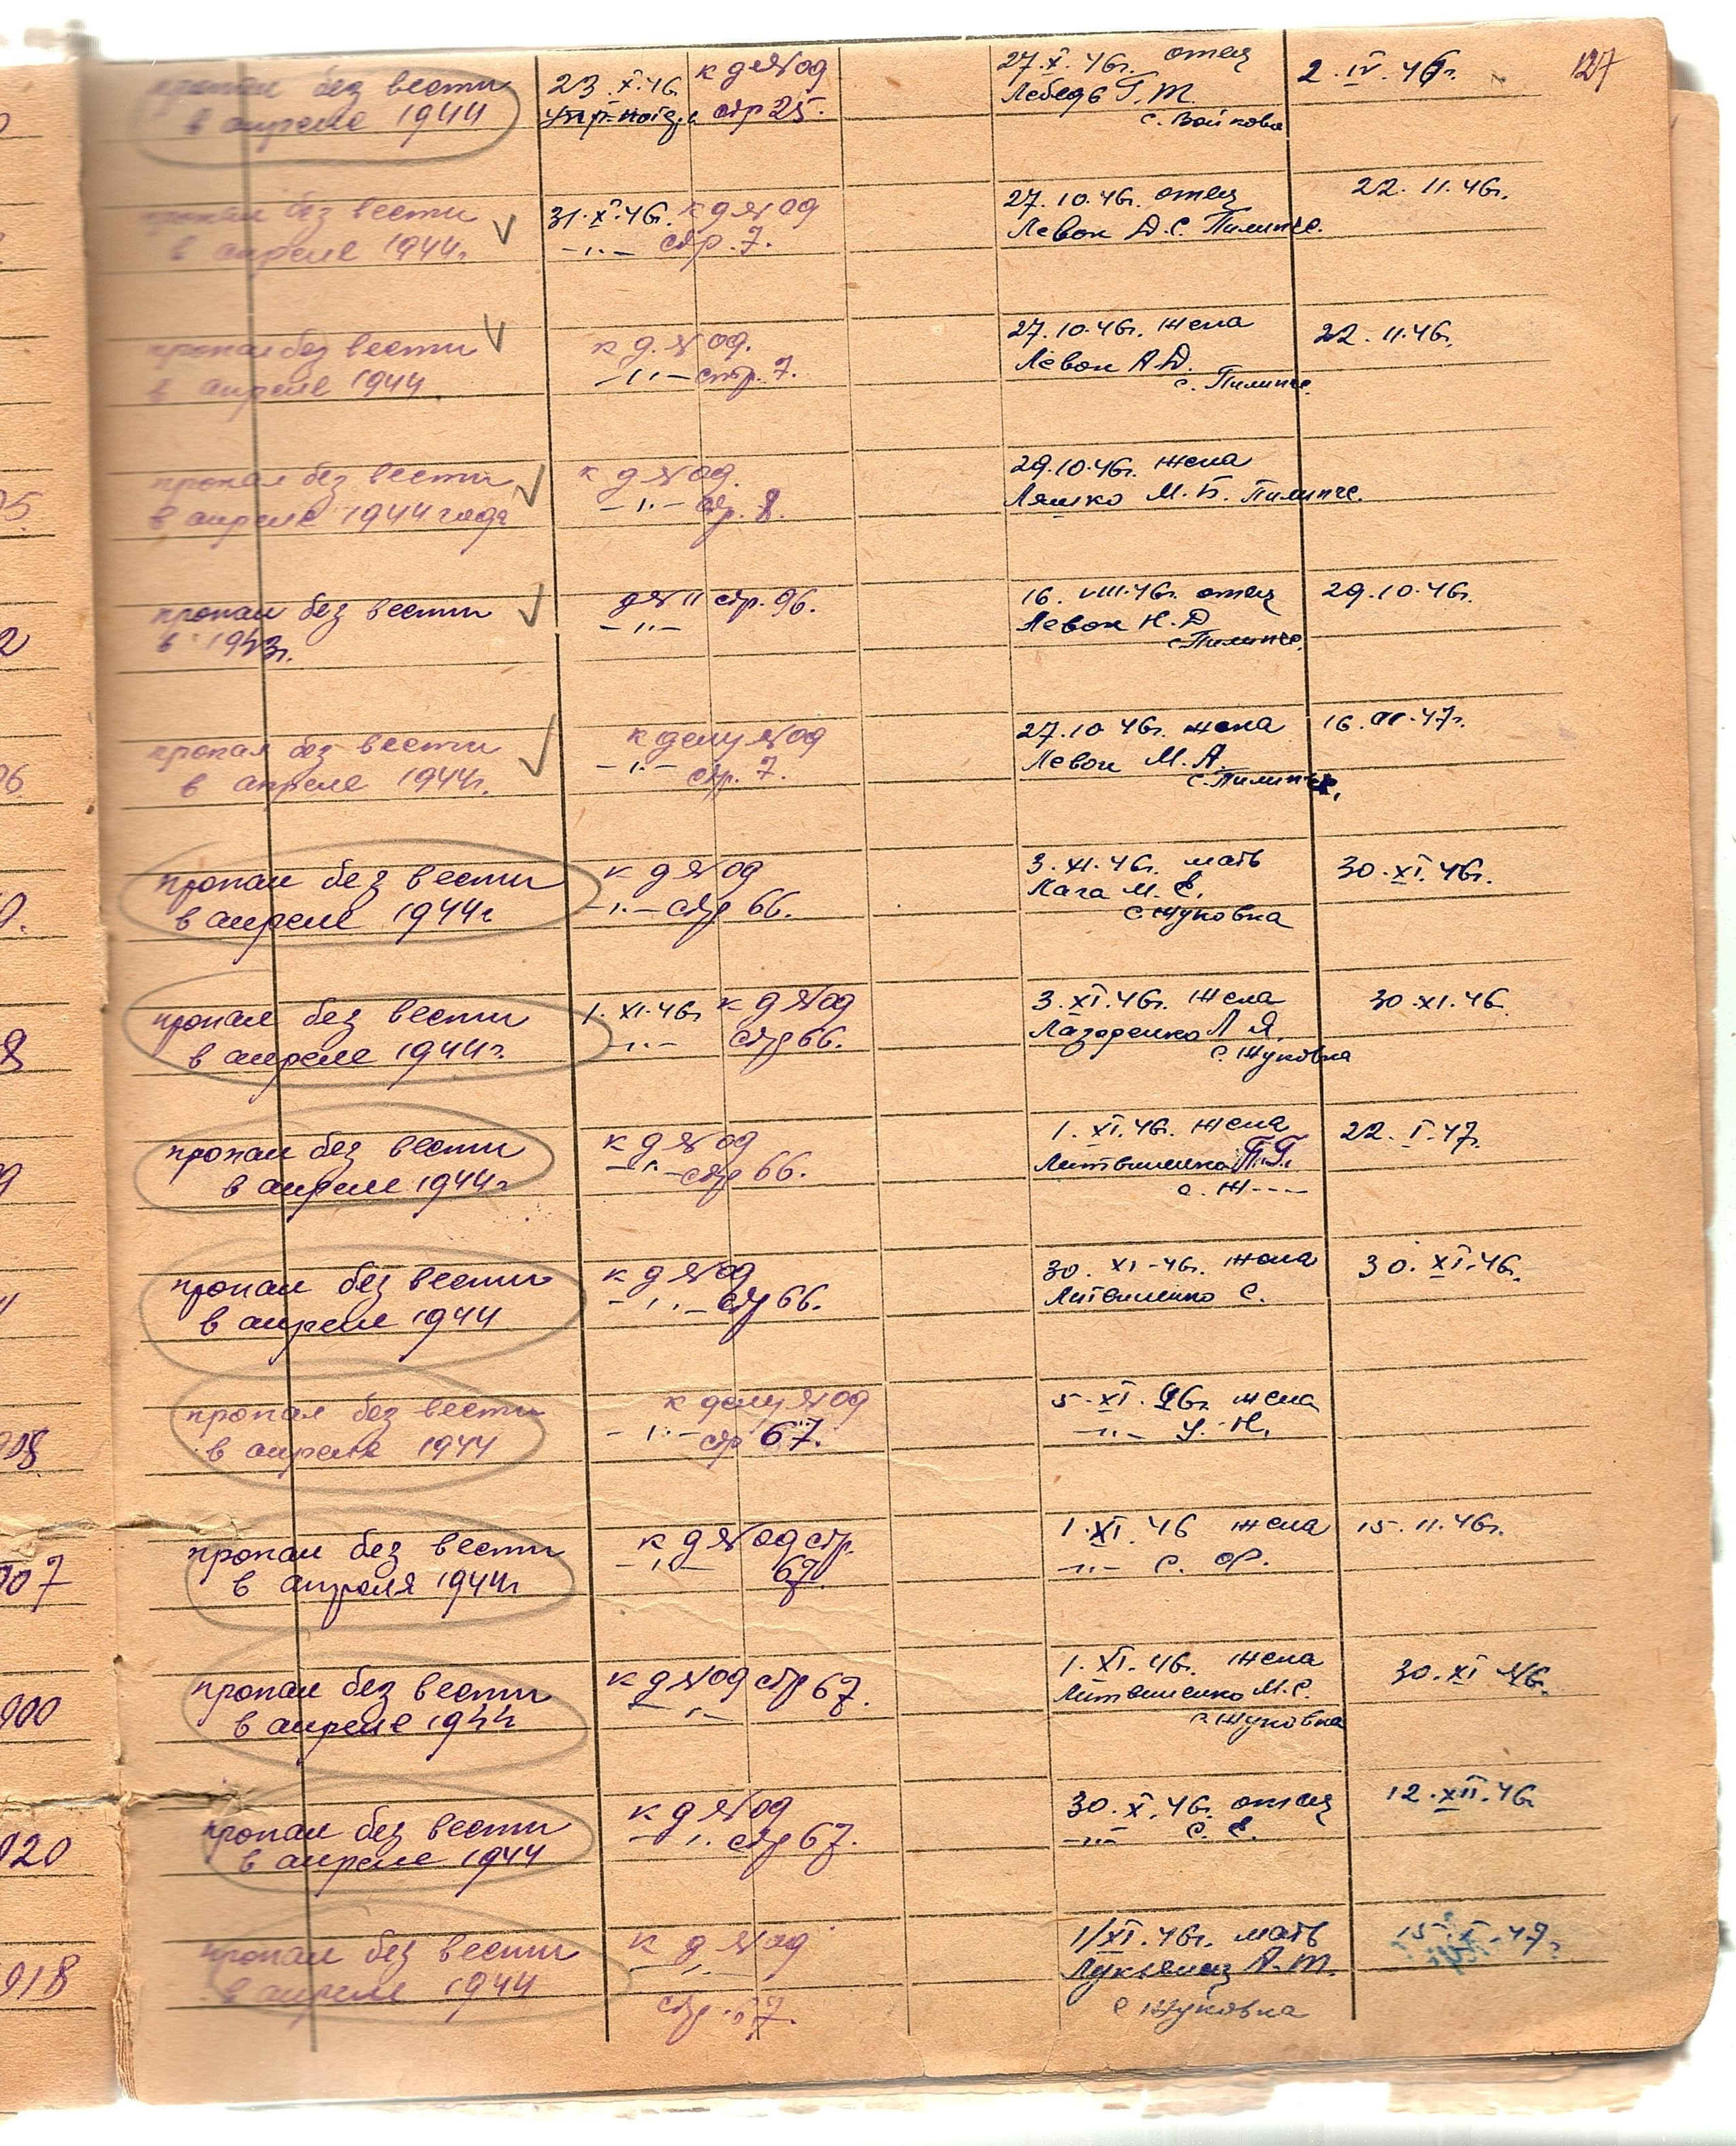 127
пропал без вести 23.X.46 к д №09 27.X.46г. отец 2.IV.46г.
в апреле 1944 стр 25. Лебедь Г.Т.
с. Войкова
пропал без вести 31.X.46г. к д №09 27.10.46г. отец 22.11.46г.
в апреле 1944г. –"– стр. 7. Левон Д.С. Пилипче.
пропал без вести к д. №09. 27.10.46г. жена 22.11.46г.
в апреле 1944 –"– стр. 7. Левон А.Д.
с. Пилипче.
пропал без вести к д №09. 29.10.46г. жена
в апреле 1944 года –"– стр. 8. Ляшко М.Б. Пилипче.
пропал без вести д №11 стр. 96. 16.VIII.46г. отец 29.10.46г.
в 1943г. –"– Левон Н.Д
с. Пилипче.
пропал без вести к делу №09 27.10 46г. жена 16. .47г.
в апреле 1944г. –"– стр. 7. Левон М.А.
с. Пилипче.
пропал без вести к д №09 3.XI.46г. мать 30.XI.46г.
в апреле 1944г –"– стр 66. Лага М.Е.
с Жуковка
пропал без вести 1.XI.46г к д №09 3.XI.46г. жена 30.XI.46
в апреле 1944г. –"– стр 66. Лазоренко Л Я.
с. Жуковка
пропал без вести к д №09 1.XI.46г. жена 22.I.47.
в апреле 1944г –"– стр 66. Литвиненко П.Г.
с. Ж----
пропал без вести к д №09 30.XI.46г. жена 30.XI.46г.
в апреле 1944 –"– стр 66. Литвиненко С.
пропал без вести к делу №09 5.XI.46г жена
в апреле 1944 –"– стр 67. –"– У.Н.
пропал без вести к д №09 стр. 1.XI.46 жена 15.11.46г.
в апреля 1944г –"– 67. –"– С. Ф.
пропал без вести к д №09 стр 67. 1.XI.46г. жена 30.XI 46.
в апреле 1944 –"– Литвиненко М.С.
с. Жуковка
пропал без вести к д №09 30.X.46г. отец 12.XII.46г
в апреле 1944 –"– стр 67. –"– С. Е.
пропал без вести к д №09 1/XI.46г. мать 15.I.47г.
в апреле 1944 –"– Лукьянец А.Т.
стр. 67. с Жуковка
05.
2
06.
9.
8
9
4
908.
907
900
920
918